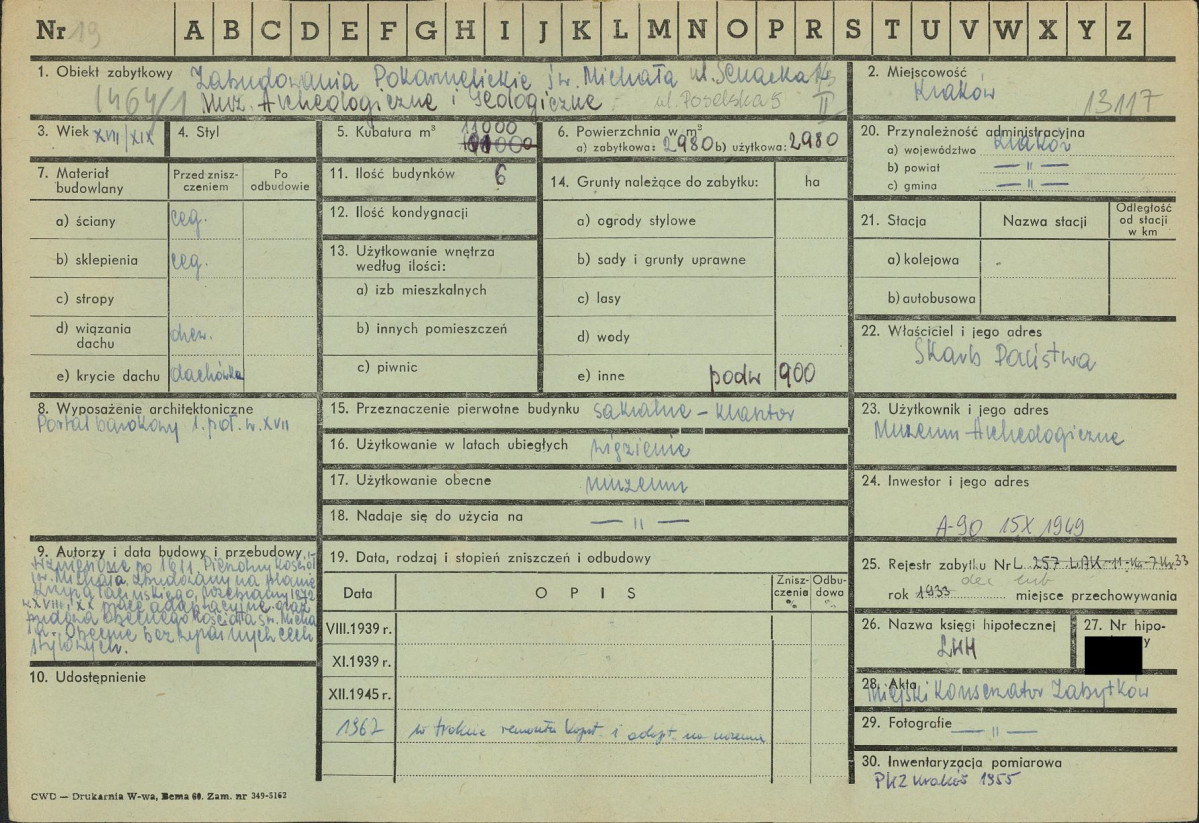 Nr 19 A B C D E F G H I J K L M N O P R S T U V W X Y Z
1. Obiekt zabytkowy Zabudowania Pokarmelickie św. Michała ul. Senacka
1464/1 Muz. Archeologiczne i Geologiczne ul. Poselska 5 II
2. Miejscowość
Kraków
13117
3. Wiek XVII/XIX
4. Styl
5. Kubatura m³ 11000
6. Powierzchnia w m²
a) zabytkowa: 2980 b) użytkowa: 2980
20. Przynależność administracyjna
a) województwo Kraków
b) powiat — " —
c) gmina — " —
7. Materiał budowlany
Przed zniszczeniem
Po odbudowie
a) ściany ceg.
b) sklepienia ceg.
c) stropy
d) wiązania dachu drew.
e) krycie dachu dachówka
11. Ilość budynków 6
12. Ilość kondygnacji
13. Użytkowanie wnętrza
według ilości:
a) izb mieszkalnych
b) innych pomieszczeń
c) piwnic
14. Grunty należące do zabytku: ha
a) ogrody stylowe
b) sady i grunty uprawne
c) lasy
d) wody
e) inne podw 900
21. Stacja
Nazwa stacji
Odległość
od stacji
w km
a) kolejowa
b) autobusowa
22. Właściciel i jego adres
Skarb Państwa
8. Wyposażenie architektoniczne
Portal barokowy 1. poł. w. XVII
15. Przeznaczenie pierwotne budynku sakralne - klasztor
16. Użytkowanie w latach ubiegłych więzienie
17. Użytkowanie obecne muzeum
18. Nadaje się do użycia na — " —
23. Użytkownik i jego adres
Muzeum Archeologiczne
24. Inwestor i jego adres
A-90 15 X 1949
9. Autorzy i data budowy i przebudowy
Wzniesione po 1611. Pierwotny kościół
św. Michała, zbudowany na planie
krzyża łacińskiego, rozebrany 1872
w XVIII i XX prace adaptacyjne oraz
budowa obecnego kościoła św. Micha
ła. Obecnie bez wyraźnych cech
stylowych.
10. Udostępnienie
19. Data, rodzaj i stopień zniszczeń i odbudowy
Data
OPIS
Zniszczenie %
Odbudowa %
VIII.1939 r.
XI.1939 r.
XII.1945 r.
1967 w trakcie remontu kapit. i adapt. na muzeum
25. Rejestr zabytku Nr L. 257
rok 1933 miejsce przechowywania
26. Nazwa księgi hipotecznej
LHH
27. Nr hipo-
y
28. Akta
Miejski Konserwator Zabytków
29. Fotografie — " —
30. Inwentaryzacja pomiarowa
PKZ Kraków 1955
CWD — Drukarnia W-wa, Bema 60. Zam. nr 349-5162